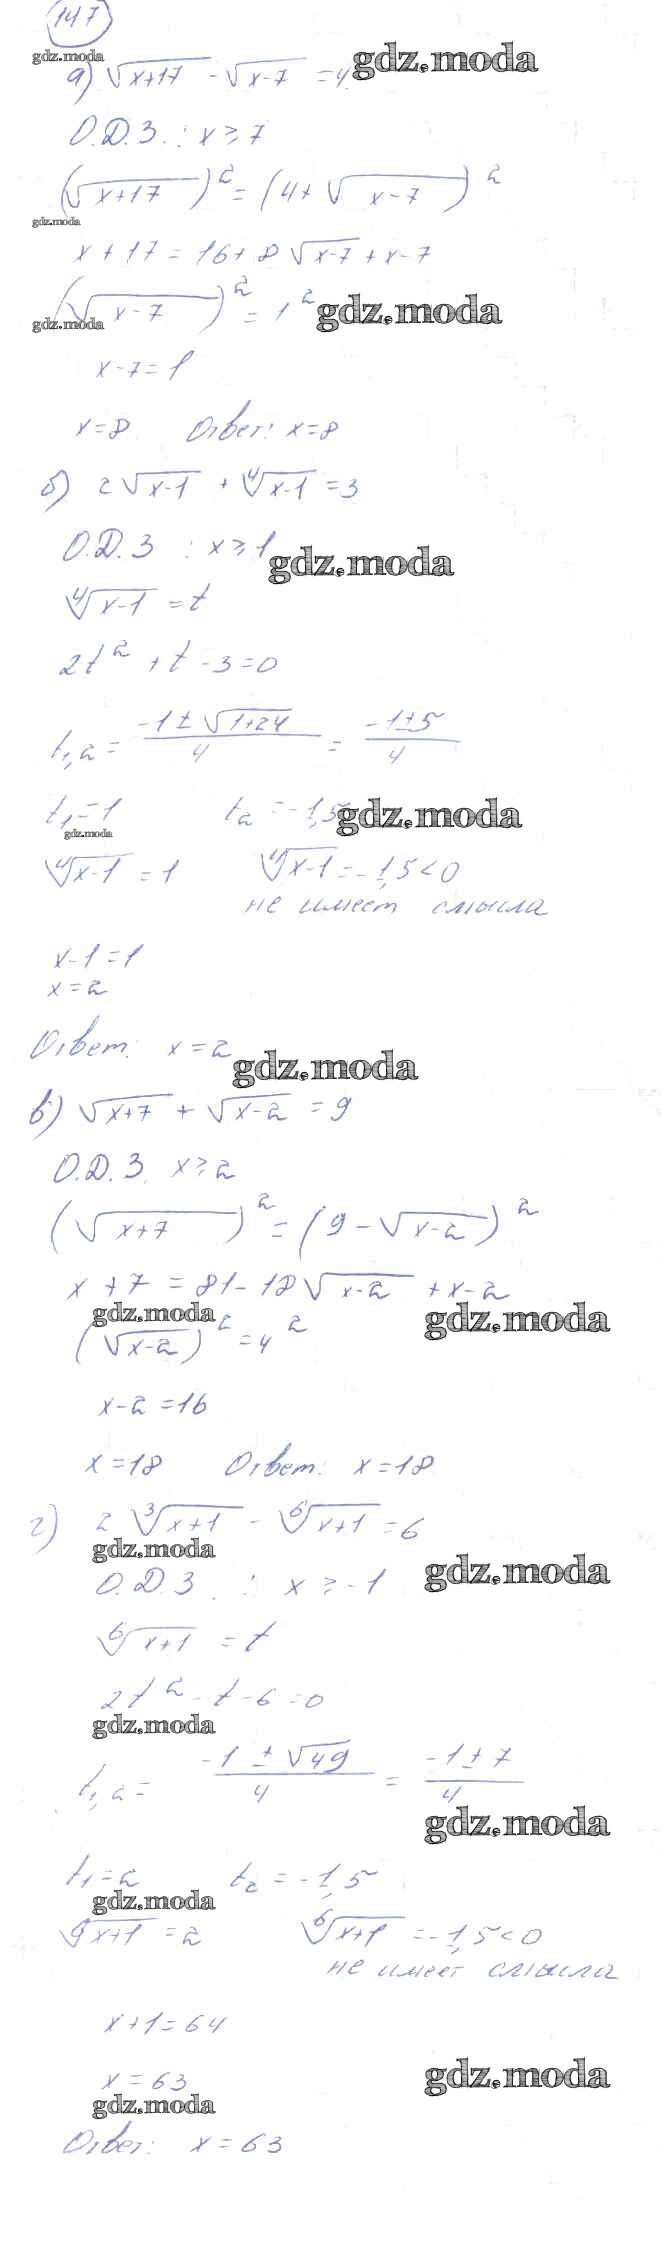 147
gdz.moda
а) √(x+17) - √(x-7) = 4
gdz.moda
О.Д.З.: x ≥ 7
(√(x+17))² = (4+√(x-7))²
gdz.moda
x+17 = 16+8√(x-7)+x-7
(√(x-7))² = 1²
gdz.moda
gdz.moda
x-7=1
x=8 Ответ: x=8
б) 2√(x-1) + ⁴√(x-1) = 3
О.Д.З : x ≥ 1
gdz.moda
⁴√(x-1) = t
2t² + t - 3 = 0
t₁,₂ = (-1±√(1+24))/4 = (-1±5)/4
t₁=1 t₂ = -1,5
gdz.moda
gdz.moda
⁴√(x-1) = 1 ⁴√(x-1) = -1,5<0
не имеет смысла
x-1=1
x=2
Ответ: x=2
gdz.moda
в) √(x+7) + √(x-2) = 9
О.Д.З. x ≥ 2
(√(x+7))² = (9-√(x-2))²
x+7 = 81-18√(x-2) +x-2
gdz.moda
gdz.moda
(√(x-2))² = 4²
x-2=16
x=18 Ответ: x=18
г) 2 ³√(x+1) - ⁶√(x+1) = 6
gdz.moda
gdz.moda
О.Д.З. : x ≥ -1
⁶√(x+1) = t
2t² - t - 6 = 0
gdz.moda
t₁,₂ = (-1±√49)/4 = (-1±7)/4
gdz.moda
t₁=2 t₂ = -1,5
gdz.moda
√(x+1) = 2 ⁶√(x+1) = -1,5<0
не имеет смысла
x+1=64
x=63
gdz.moda
gdz.moda
Ответ: x=63